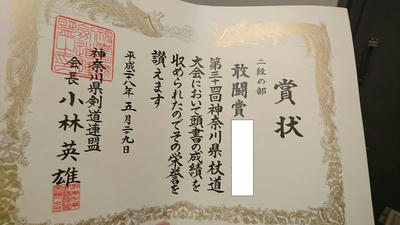 賞状
二段の部
敢闘賞
第三十四回神奈川県杖道
大会において頭書の成績を
収められたのでその栄誉を
讃えます
平成二八年五月二九日
神奈川県剣道連盟
会長 小林英雄